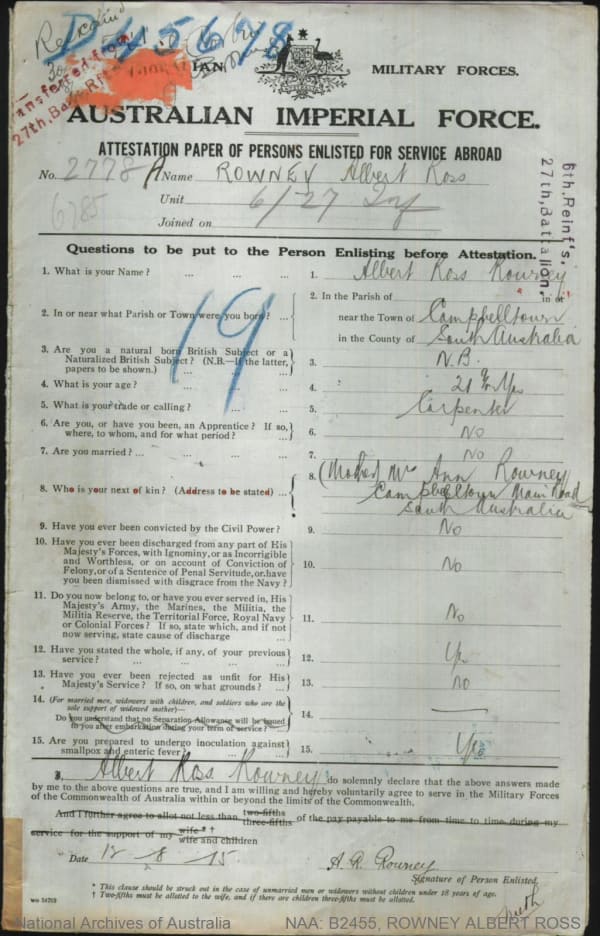 D45628
AUSTRALIAN MILITARY FORCES.
Transferred from
27th, Batt.
AUSTRALIAN IMPERIAL FORCE.
ATTESTATION PAPER OF PERSONS ENLISTED FOR SERVICE ABROAD
No. 2778A Name ROWNEY Albert Ross
6785
Unit 6/27 Inf
Joined on
6th, Reinf's,
27th, Battalion,
Questions to be put to the Person Enlisting before Attestation.
19
1. What is your Name? ... ... ... 1. Albert Ross Rowney
2. In or near what Parish or Town were you born? ... 2. In the Parish of in or
near the Town of Campbelltown
in the County of South Australia
3. Are you a natural born British Subject or a
Naturalized British Subject? (N.B.—If the latter,
papers to be shown.) ... ... 3. N.B.
4. What is your age? ... ... ... 4. 21
5. What is your trade or calling? ... ... 5. Carpenter
6. Are you, or have you been, an Apprentice? If so,
where, to whom, and for what period? ... 6. No
7. Are you married? ... ... ... 7. No
8. Who is your next of kin? (Address to be stated) ... 8. (Mother) Mrs Ann Rowney
Campbelltown Main Road
South Australia
9. Have you ever been convicted by the Civil Power? 9. No
10. Have you ever been discharged from any part of His
Majesty's Forces, with Ignominy, or as Incorrigible
and Worthless, or on account of Conviction of
Felony, or of a Sentence of Penal Servitude, or have
you been dismissed with disgrace from the Navy? 10. No
11. Do you now belong to, or have you ever served in, His
Majesty's Army, the Marines, the Militia, the
Militia Reserve, the Territorial Force, Royal Navy
or Colonial Forces? If so, state which, and if not
now serving, state cause of discharge 11. No
12. Have you stated the whole, if any, of your previous
service? ... ... ... 12. Yes
13. Have you ever been rejected as unfit for His
Majesty's Service? If so, on what grounds? ... 13. No
14. (For married men, widowers with children, and soldiers who are the
sole support of widowed mother)—
Do you understand that no Separation Allowance will be issued
to you after embarkation during your term of service? 14. —
15. Are you prepared to undergo inoculation against
smallpox and enteric fever? ... ... 15. Yes
I, Albert Ross Rowney do solemnly declare that the above answers made
by me to the above questions are true, and I am willing and hereby voluntarily agree to serve in the Military Forces
of the Commonwealth of Australia within or beyond the limits of the Commonwealth.
And I further agree to allot not less than two-fifths three-fifths of the pay payable to me from time to time during my
service for the support of my wife * † wife and children
Date 12 - 8 - 15 A. R. Rowney
Signature of Person Enlisted.
* This clause should be struck out in the case of unmarried men or widowers without children under 18 years of age.
† Two-fifths must be allotted to the wife, and if there are children three-fifths must be allotted.
National Archives of Australia NAA: B2455, ROWNEY ALBERT ROSS